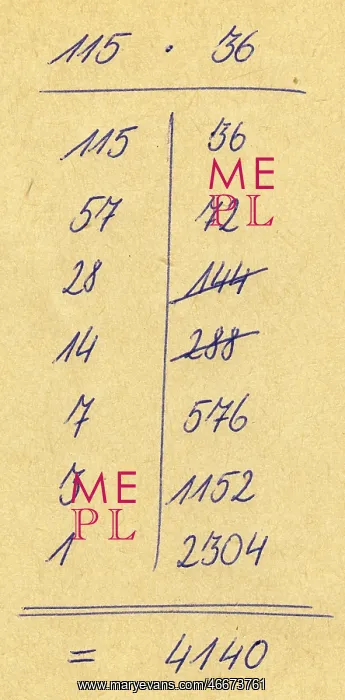 115 · 36
115 36
ME
PL
57 72
28 144
14 288
7 576
3 1152
ME
PL
1 2304
= 4140
www.maryevans.com/46673761